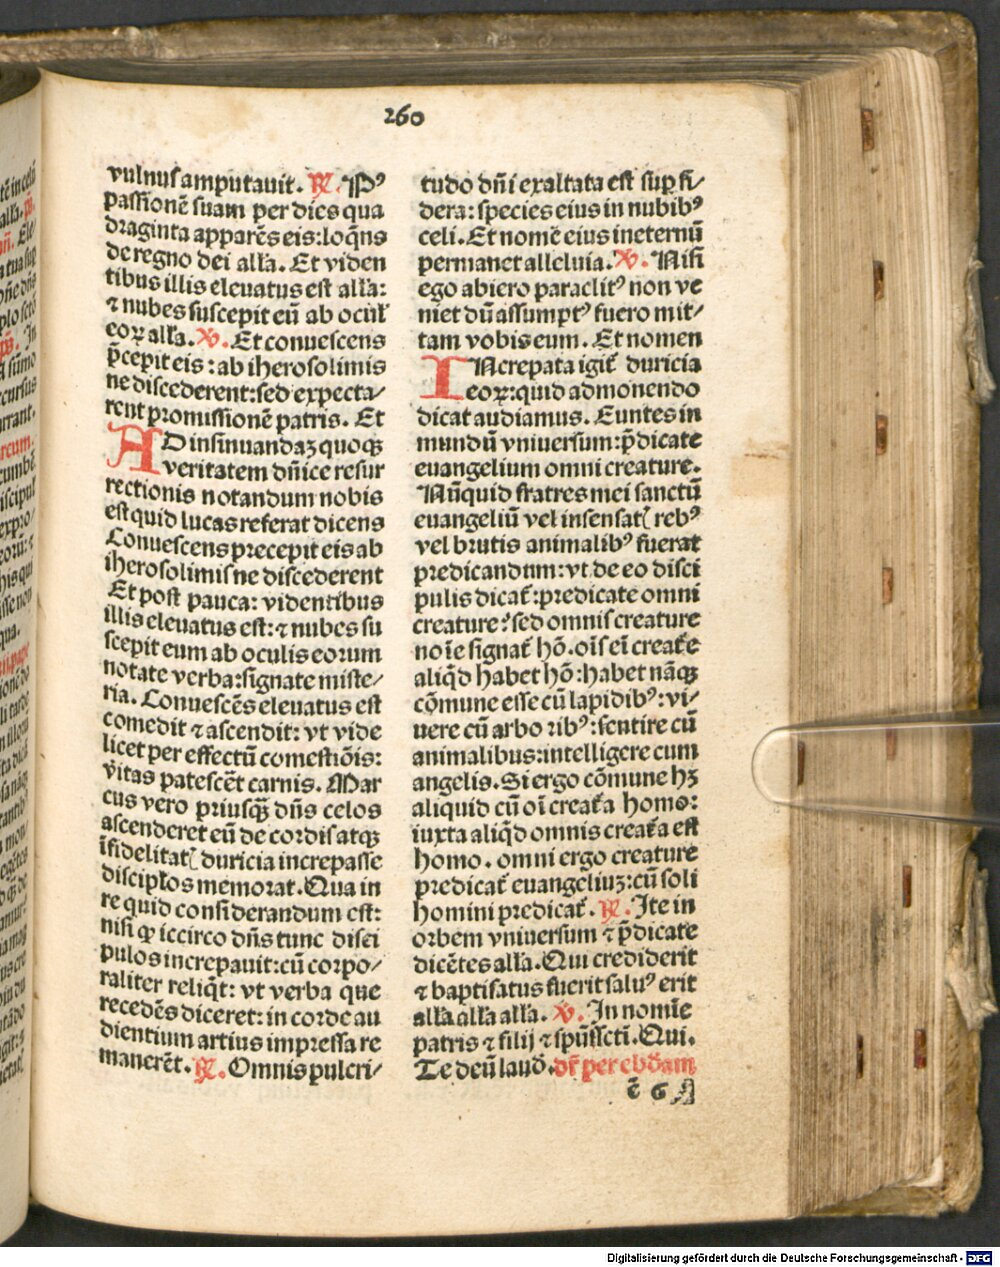 260
vulnuſ amputauit. ℟. Pꝰ
paſſionē ſuam per dies qua
draginta apparēs eis: loq̄ns
de regno dei alľa. Et viden
tibus illis eleuatus eſt alľa:
⁊ nubes ſuscepit eū ab ocuľ
eoꝝ alľa. ℣. Et conueſcens
p̄cepit eis: ab iheroſolimis
ne diſcederent: ſed expecta/
rent promiſſionē patris. Et
AD inſinuandaꝫ quoqꝫ
veritatem dn̄ice reſur
rectionis notandum nobis
eſt quid lucas referat dicens
Conueſcens precepit eis ab
iheroſolimis ne diſcederent
Et poſt pauca: videntibus
illis eleuatus eſt: ⁊ nubes ſu
ſcepit eum ab oculis eorum
notate verba: ſignate miſte/
ria. Conueſcēs eleuatus eſt
comedit ⁊ aſcendit: vt vide
licet per effectū comeſtiōis:
v̄itas pateſcēt carnis. Mar
cus vero priuſqꝫ̄ dn̄s celos
aſcenderet eū de cordiſ atqꝫ
īfidelitatꝭ duricia increpaſſe
diſcipľos memorat. Qua in
re quid conſiderandum eſt:
niſi ꝙ iccirco dn̄s tunc diſci
pulos increpauit: cū corpo/
raliter reliq̄t: vt verba que
recedēs diceret: in corde au
dientium artius impreſſa re
manerēt. ℟. Omnis pulcri/
tudo dn̄i exaltata eſt ſuꝑ ſi/
dera: ſpecies eius in nubibꝰ
celi. Et nomē eius in eternū
permanet alleluia. ℣. Niſi
ego abiero paraclitꝰ non ve
niet dū aſſumptꝰ fuero mit/
tam vobis eum. Et nomen
INcrepata igiť duricia
eoꝝ: quid admonendo
dicat audiamus. Euntes in
mundū vniuerſum: p̄dicate
euangelium omni creature.
Nūquid fratres mei ſanctū
euangeliū vel inſenſatꝭ rebꝰ
vel brutis animalibꝰ fuerat
predicandum: vt de eo diſci
pulis dicať: predicate omni
creature? ſed omnis creature
noīe ſignať hō. oīſ eī creať e
aliq̄d habet hō: habet nāqꝫ
cōmune eſſe cū lapidibꝰ: vi/
uere cū arbo ribꝰ: ſentire cū
animalibus: intelligere cum
angelis. Si ergo cōmune hꝫ
aliquid cū oī creať a homo:
iuxta aliq̄d omnis creať a eſt
homo. omni ergo creature
predicať euangeliuꝫ: cū ſoli
homini predicať. ℟. Ite in
orbem vniuerſum ⁊ p̄dicate
dicētes alľa. Qui crediderit
⁊ baptiſatus fuerit ſaluꝰ erit
alľa alľa alľa. ℣. In nomīe
patris ⁊ filij ⁊ ſpūſſcti. Qui.
Te deū laud̄. dr̄ per ebd̄am
ē 6
Digitalisierung gefördert durch die Deutsche Forschungsgemeinschaft - DFG